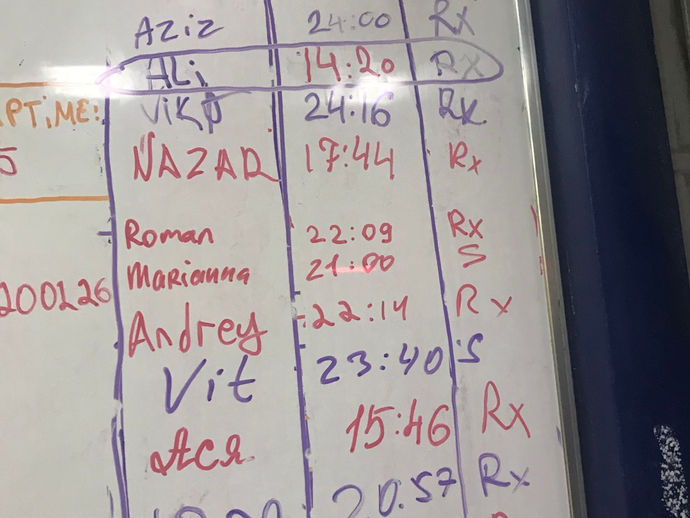 Aziz 24:00 Rx
ALi 14:20 RX
PTiME: Vika 24:16 RX
5 NAZAR 17:44 Rx
Roman 22:09 Rx
Marianna 21:00 S
200126
Andrey 22:14 Rx
Vit 23:40 S
Ася 15:46 Rx
20.57 Rx